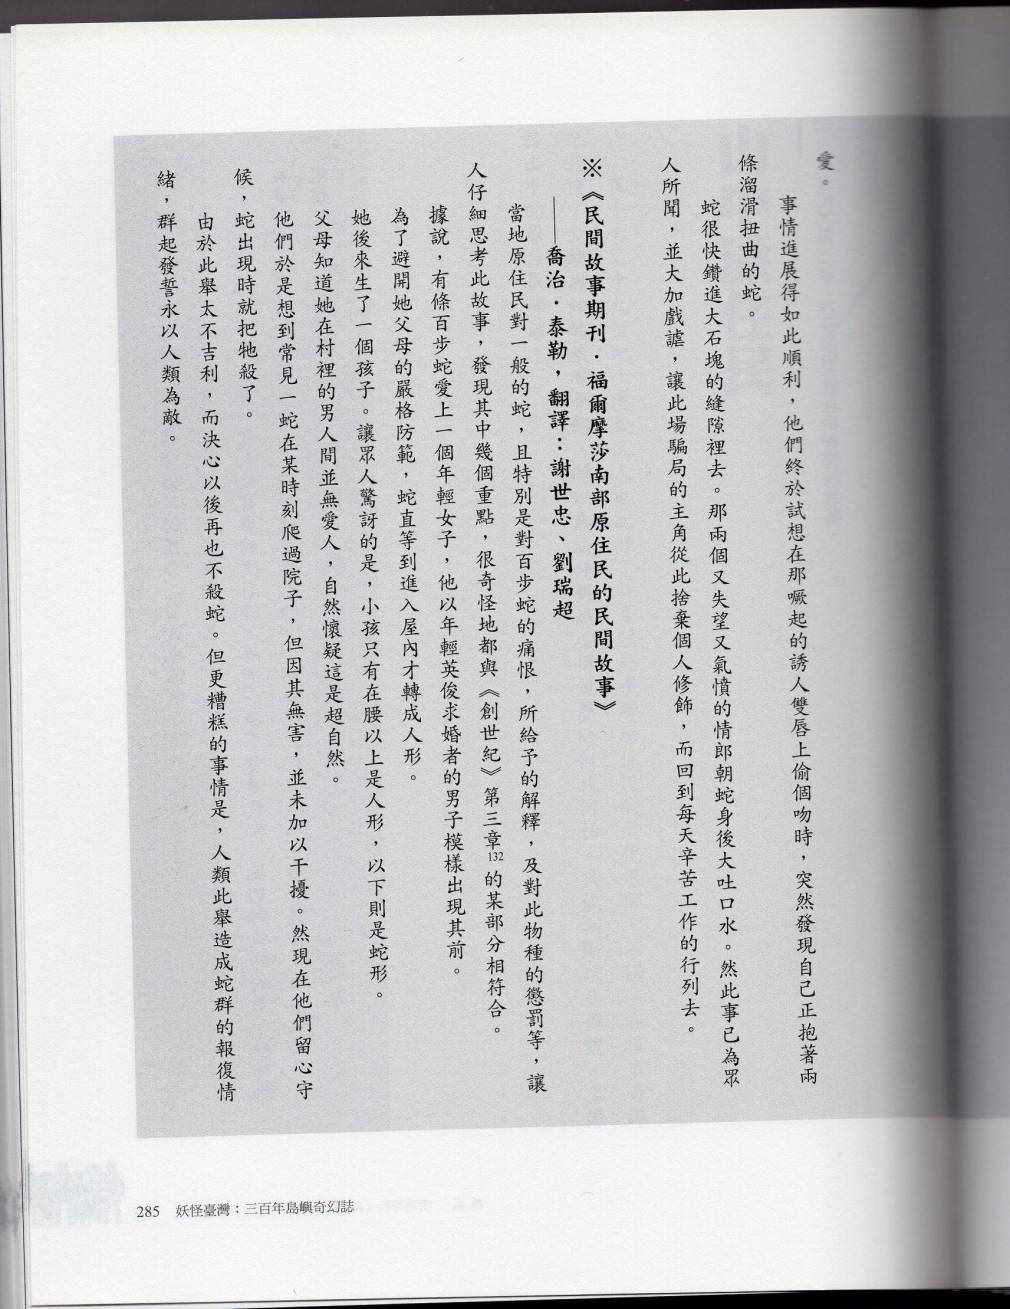 愛。
事情進展得如此順利，他們終於試想在那噘起的誘人雙唇上偷個吻時，突然發現自己正抱著兩
條溜滑扭曲的蛇。
蛇很快鑽進大石塊的縫隙裡去。那兩個又失望又氣憤的情郎朝蛇身後大吐口水。然此事已為眾
人所聞，並大加戲謔，讓此場騙局的主角從此捨棄個人修飾，而回到每天辛苦工作的行列去。
※《民間故事期刊．福爾摩莎南部原住民的民間故事》
——喬治．泰勒，翻譯：謝世忠、劉瑞超
當地原住民對一般的蛇，且特別是對百步蛇的痛恨，所給予的解釋，及對此物種的懲罰等，讓
人仔細思考此故事，發現其中幾個重點，很奇怪地都與《創世紀》第三章132的某部分相符合。
據說，有條百步蛇愛上一個年輕女子，他以年輕英俊求婚者的男子模樣出現其前。
為了避開她父母的嚴格防範，蛇直等到進入屋內才轉成人形。
她後來生了一個孩子。讓眾人驚訝的是，小孩只有在腰以上是人形，以下則是蛇形。
父母知道她在村裡的男人間並無愛人，自然懷疑這是超自然。
他們於是想到常見一蛇在某時刻爬過院子，但因其無害，並未加以干擾。然現在他們留心守
候，蛇出現時就把牠殺了。
由於此舉太不吉利，而決心以後再也不殺蛇。但更糟糕的事情是，人類此舉造成蛇群的報復情
緒，群起發誓永以人類為敵。
285 妖怪臺灣：三百年島嶼奇幻誌